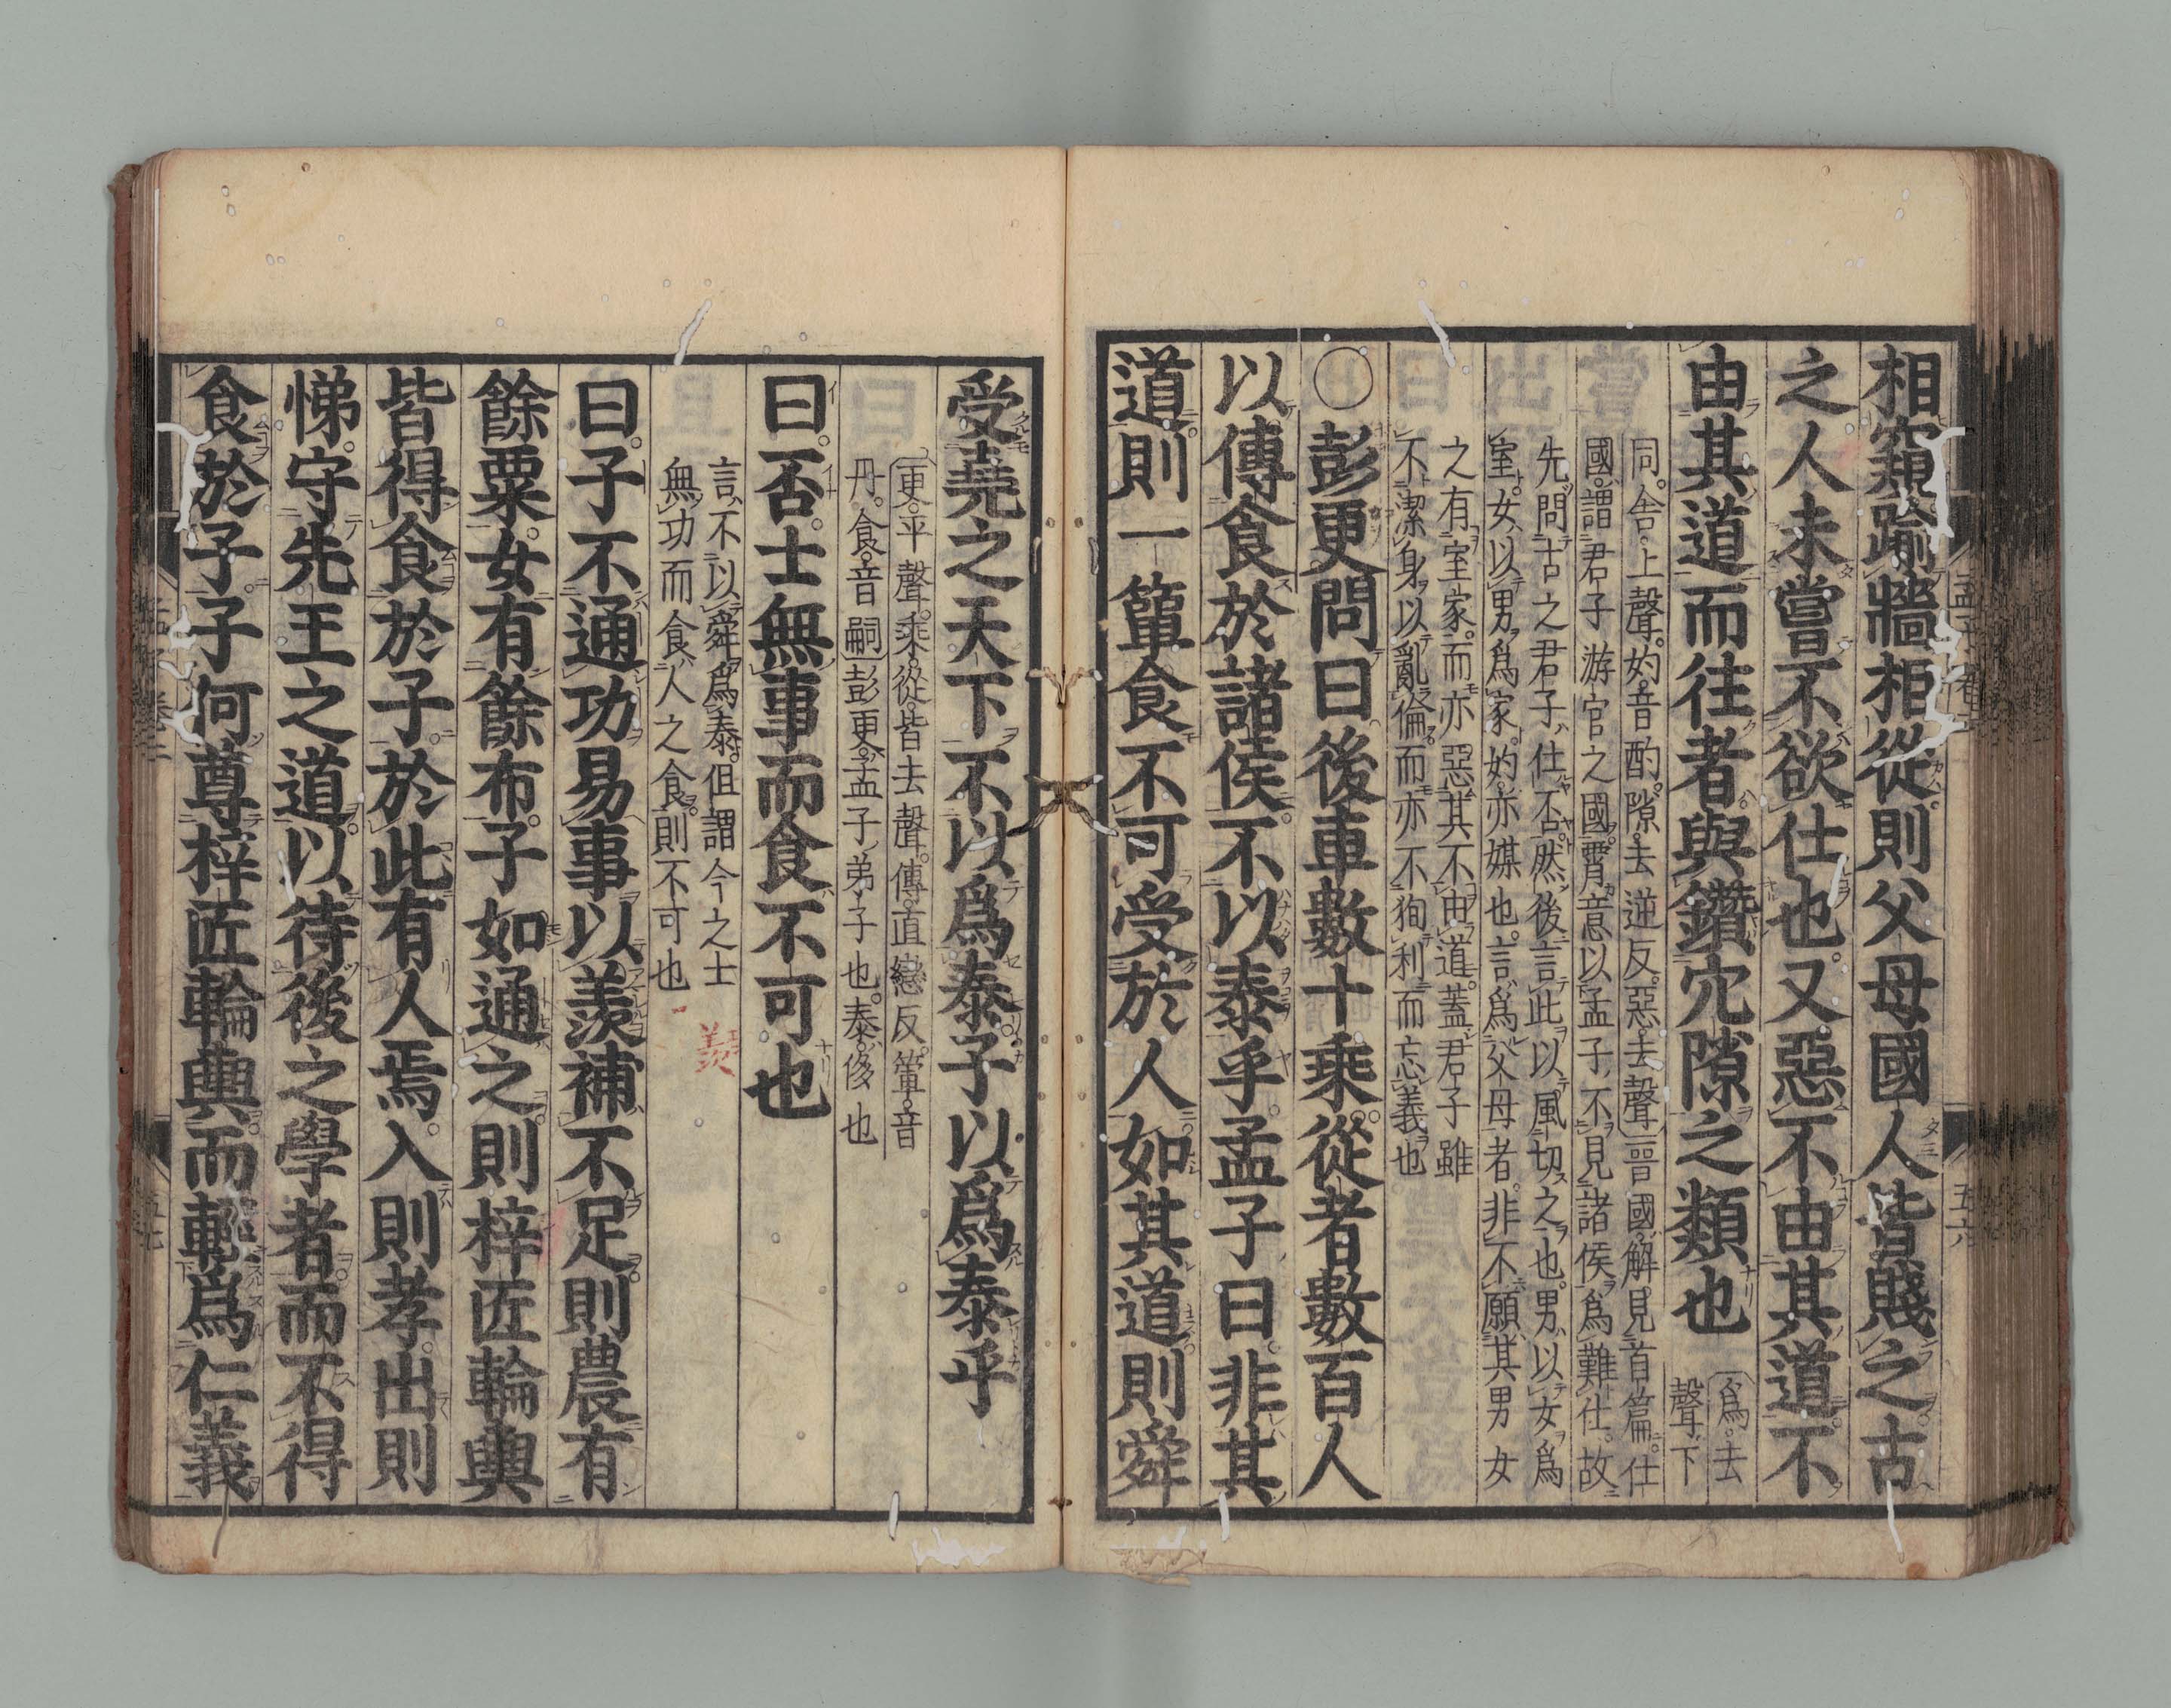 相窺踰牆相從則父母國人皆賤之古
之人未嘗不欲仕也又惡不由其道不
由其道而往者與鑽穴隙之類也
爲去
聲下
同舍上聲妁音酌隙去逆反惡去聲晉國解見首篇仕
國謂君子游宦之國霄意以孟子不見諸侯爲難仕故
先問古之君子仕否然後言此以風切之也男以女爲
室女以男爲家妁亦媒也言爲父母者非不願其男女
之有室家而亦惡其不由道蓋君子雖
不潔身以亂倫而亦不狥利而忘義也
○彭更問曰後車數十乘從者數百人
以傳食於諸侯不以泰乎孟子曰非其
道則一簞食不可受於人如其道則舜
受堯之天下不以爲泰子以爲泰乎
更平聲乘從皆去聲傳直戀反簞音
丹食音嗣彭更孟子弟子也泰侈也
曰否士無事而食不可也
言不以舜爲泰但謂今之士
無功而食人之食則不可也
羨
曰子不通功易事以羨補不足則農有
餘粟女有餘布子如通之則梓匠輪輿
皆得食於子於此有人焉入則孝出則
悌守先王之道以待後之學者而不得
食於子子何尊梓匠輪輿而輕爲仁義